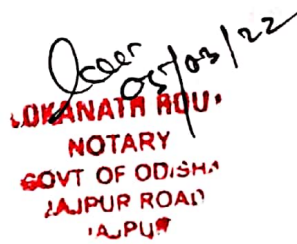 05/03/22
LOKANATH ROUT
NOTARY
GOVT OF ODISHA
JAJPUR ROAD
JAJPUR